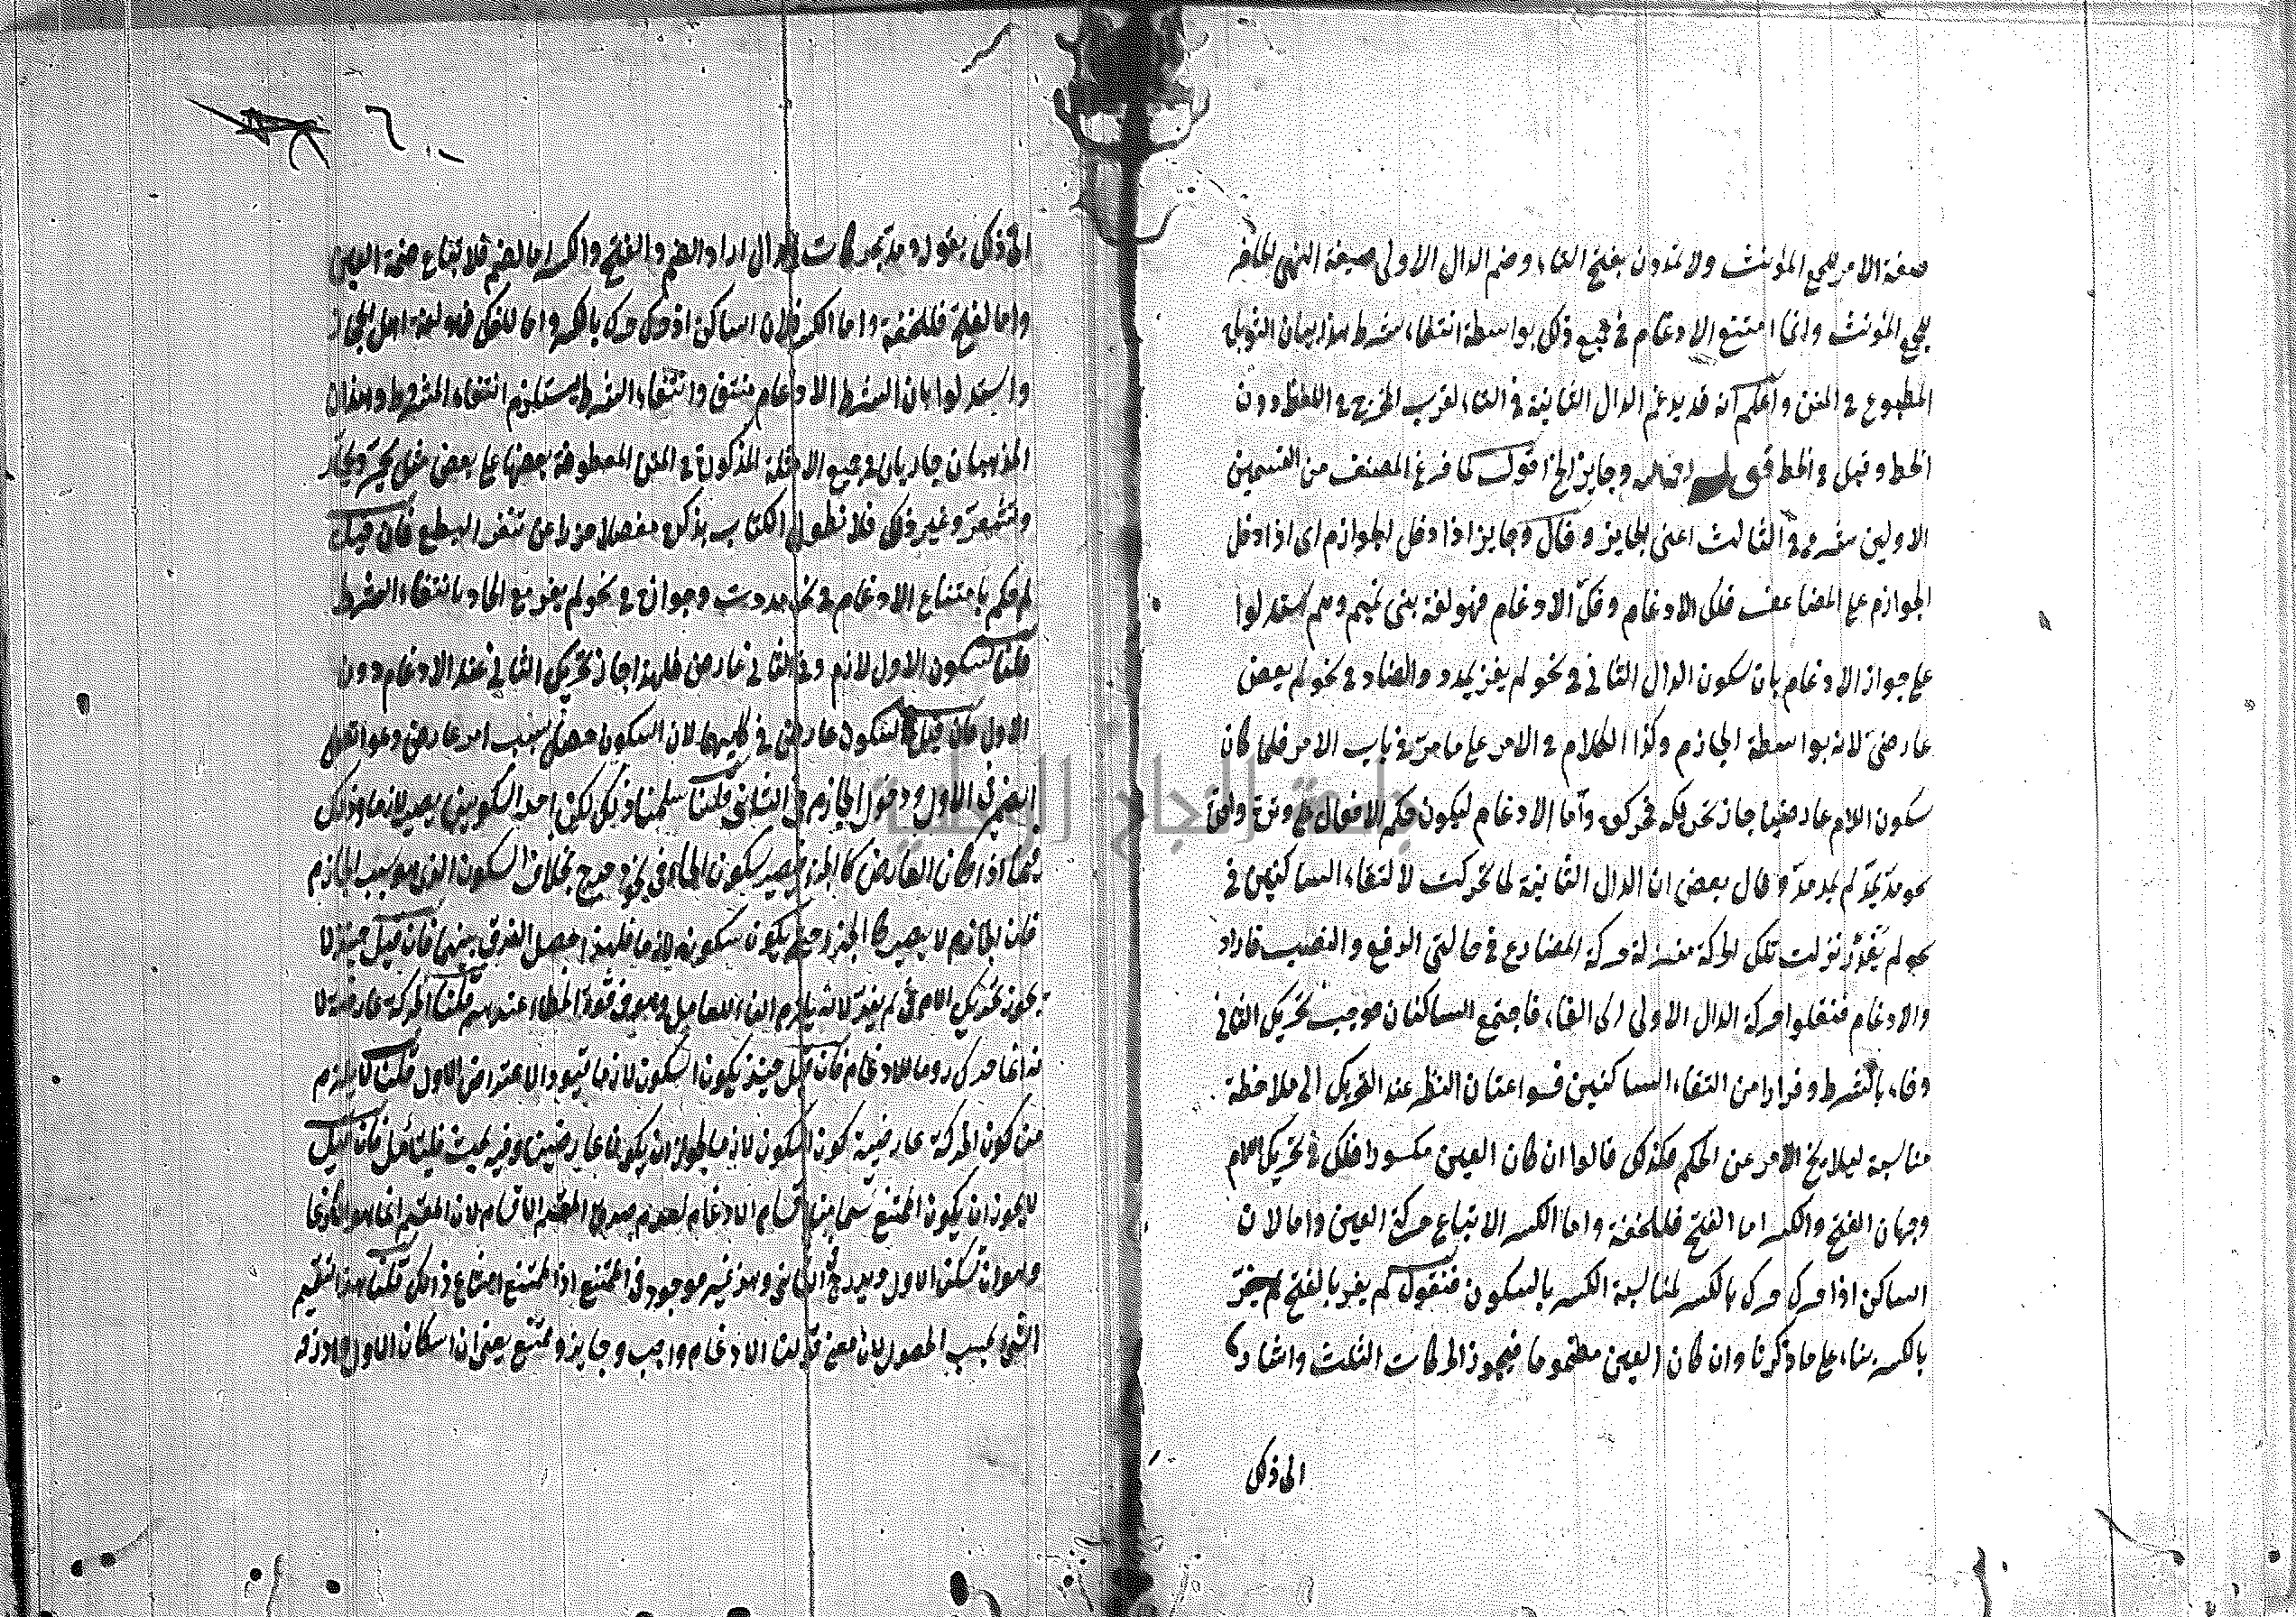 صيغة الامر لجمع المؤنث ولا تمددن بفتح التاء وضم الدال الاولى صيغة النهى
لجمع المؤنث وانما امتنع الادغام فى جميع ذلك بواسطة انتفاء شرط
المطبوع فى المتن واعلم انه قد يدغم الدال الثانية فى التاء لقرب المخرج فى اللفظ دون
الخط وقيل فى الخط وجايز الخ اقول لما فرغ المصنف من القسمين
الاولين شرع فى الثالث اعنى الجايز وقال وجايز اذا دخل الجوازم اى اذا دخل
الجوازم على المضاعف فلك الادغام وفك الادغام فهو لغة بنى تميم وهم استدلوا
على جواز الادغام بان سكون الدال الثانى فى نحو لم يفر يمدد والضاد فى نحو لم يعض
عارضى لانه بواسطة الجازم وكذا الكلام فى الامر على ما مر فى باب الامر فلما كان
سكون اللام عارضيا جاز تحريكه واما الادغام ليكون حكم الافعال
نحو مد يمد لم يمد مد وقال بعض ان الدال الثانية لما تحركت لالتقاء الساكنين فى
نحو لم نزلت تلك الحركة منزلة حركة المضارع فى حالتى الرفع والنصب فاراد
والادغام فنقلوا حركة الدال الاولى الى الفاء فاجتمع الساكنان فوجب تحريك الثانى
وفاء بالشرط وفرارا من التقاء الساكنين النظر عند التحريك الى ملاحظة
مناسبة ليلا يخ الامر عن الحكم فكذلك قالوا ان كان العين مكسورا فلك فى تحريك اللام
وجهان الفتح والكسر اما الفتح فللخفة واما الكسر الاتباع حركة العين واما لان
الساكن اذا حرك حرك بالكسر لمناسبة الكسر بالسكون فنقول لم يفر بالفتح لم يفر
بالكسر بناء على ما ذكرنا وان كان العين مضموما فيجوز الحركات الثلث واشار
الى ذلك
الى ذلك بقوله مد بحركات الدال اراد الضم والفتح والكسر اما لضم فلاتباع ضمة العين
واما لفتح فللخفة واما الكسر فلان الساكن اذا حرك حرك بالكسر واما للفك فهو لغة اهل الحجاز
واستدلوا بان الشرط الادغام منتف وانتفاء الشرط يستلزم انتفاء المشروط وهذان
المذهبان جاريان فى جميع الامثلة المذكورة فى المتن المعطوفة بعضها على بعض مثل
وغير ذلك فلا نطول الكتاب بذكره مفصلا عن تنفر الطبع فان قيل
لم حكم بامتناع الادغام فى نحو مددت وجوازه فى نحو لم يفر مع اتحادهما انتفاء الشرط
قلنا السكون الاول لازم وفى الثانى عارض فلهذا جاز تحريك الثانى عند الادغام دون
الاول فان قيل السكون عارض فى كليهما لان السكون حصل بسبب امر عارض وهو اتصال
الضمير فى الاول ودخول الجازم فى الثانى قلنا سلمنا ذلك لكن احد السكونين يصير لازما وذلك
فيما اذا كان العارض كالجزء فيصير سكون بخلاف السكون الذى هو سبب الجازم
فان الجازم لا يصير كالجزء حتى يكون سكونه لازما فلهذا حصل الفرق بينهما فان قيل حينئذ لا
يجوز تحريك اللام فى لم يفر لانه يلزم قلنا الحركة عارضة لا
نه انما حرك روما للادغام فان قيل حينئذ يكون السكون لازما فيعود الاعتراض الاول قلنا لا يلزم
من كون الحركة عارضية كون السكون لازما لجواز ان يكونا عارضين وفيه بحث فليتأمل فان قيل
لا يجوز ان يكون الممتنع قسما من اقسام الادغام لعدم صدق المقسم الاقسام لان المقسم انما هو الادغام
وهو ان تسكن الاول ويدرج الثانى وهذا غير موجود فى الممتنع اذ الممتنع امتناع ذلك قلنا هذا التقسيم
الشىء بحسب الحصول لان معنى قولنا الادغام واجب وجايز وممتنع يعنى ان اسكان الاول